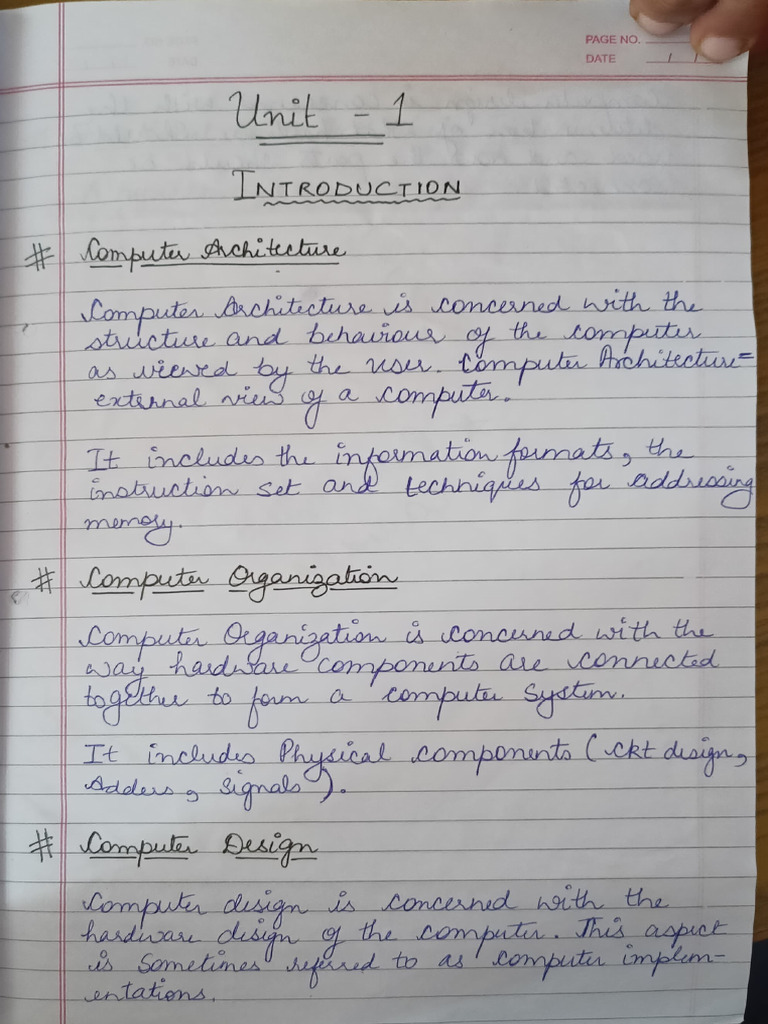 PAGE NO.
DATE / /
Unit - 1
INTRODUCTION
# Computer Architecture
Computer Architecture is concerned with the
structure and behaviour of the computer
as viewed by the user. Computer Architecture =
external view of a computer.
It includes the information formats, the
instruction set and techniques for addressing
memory.
# Computer Organization
Computer Organization is concerned with the
way hardware components are connected
together to form a computer system.
It includes Physical components (ckt design,
Adders, signals).
# Computer Design
Computer design is concerned with the
hardware design of the computer. This aspect
is sometimes referred to as computer implem-
entations.